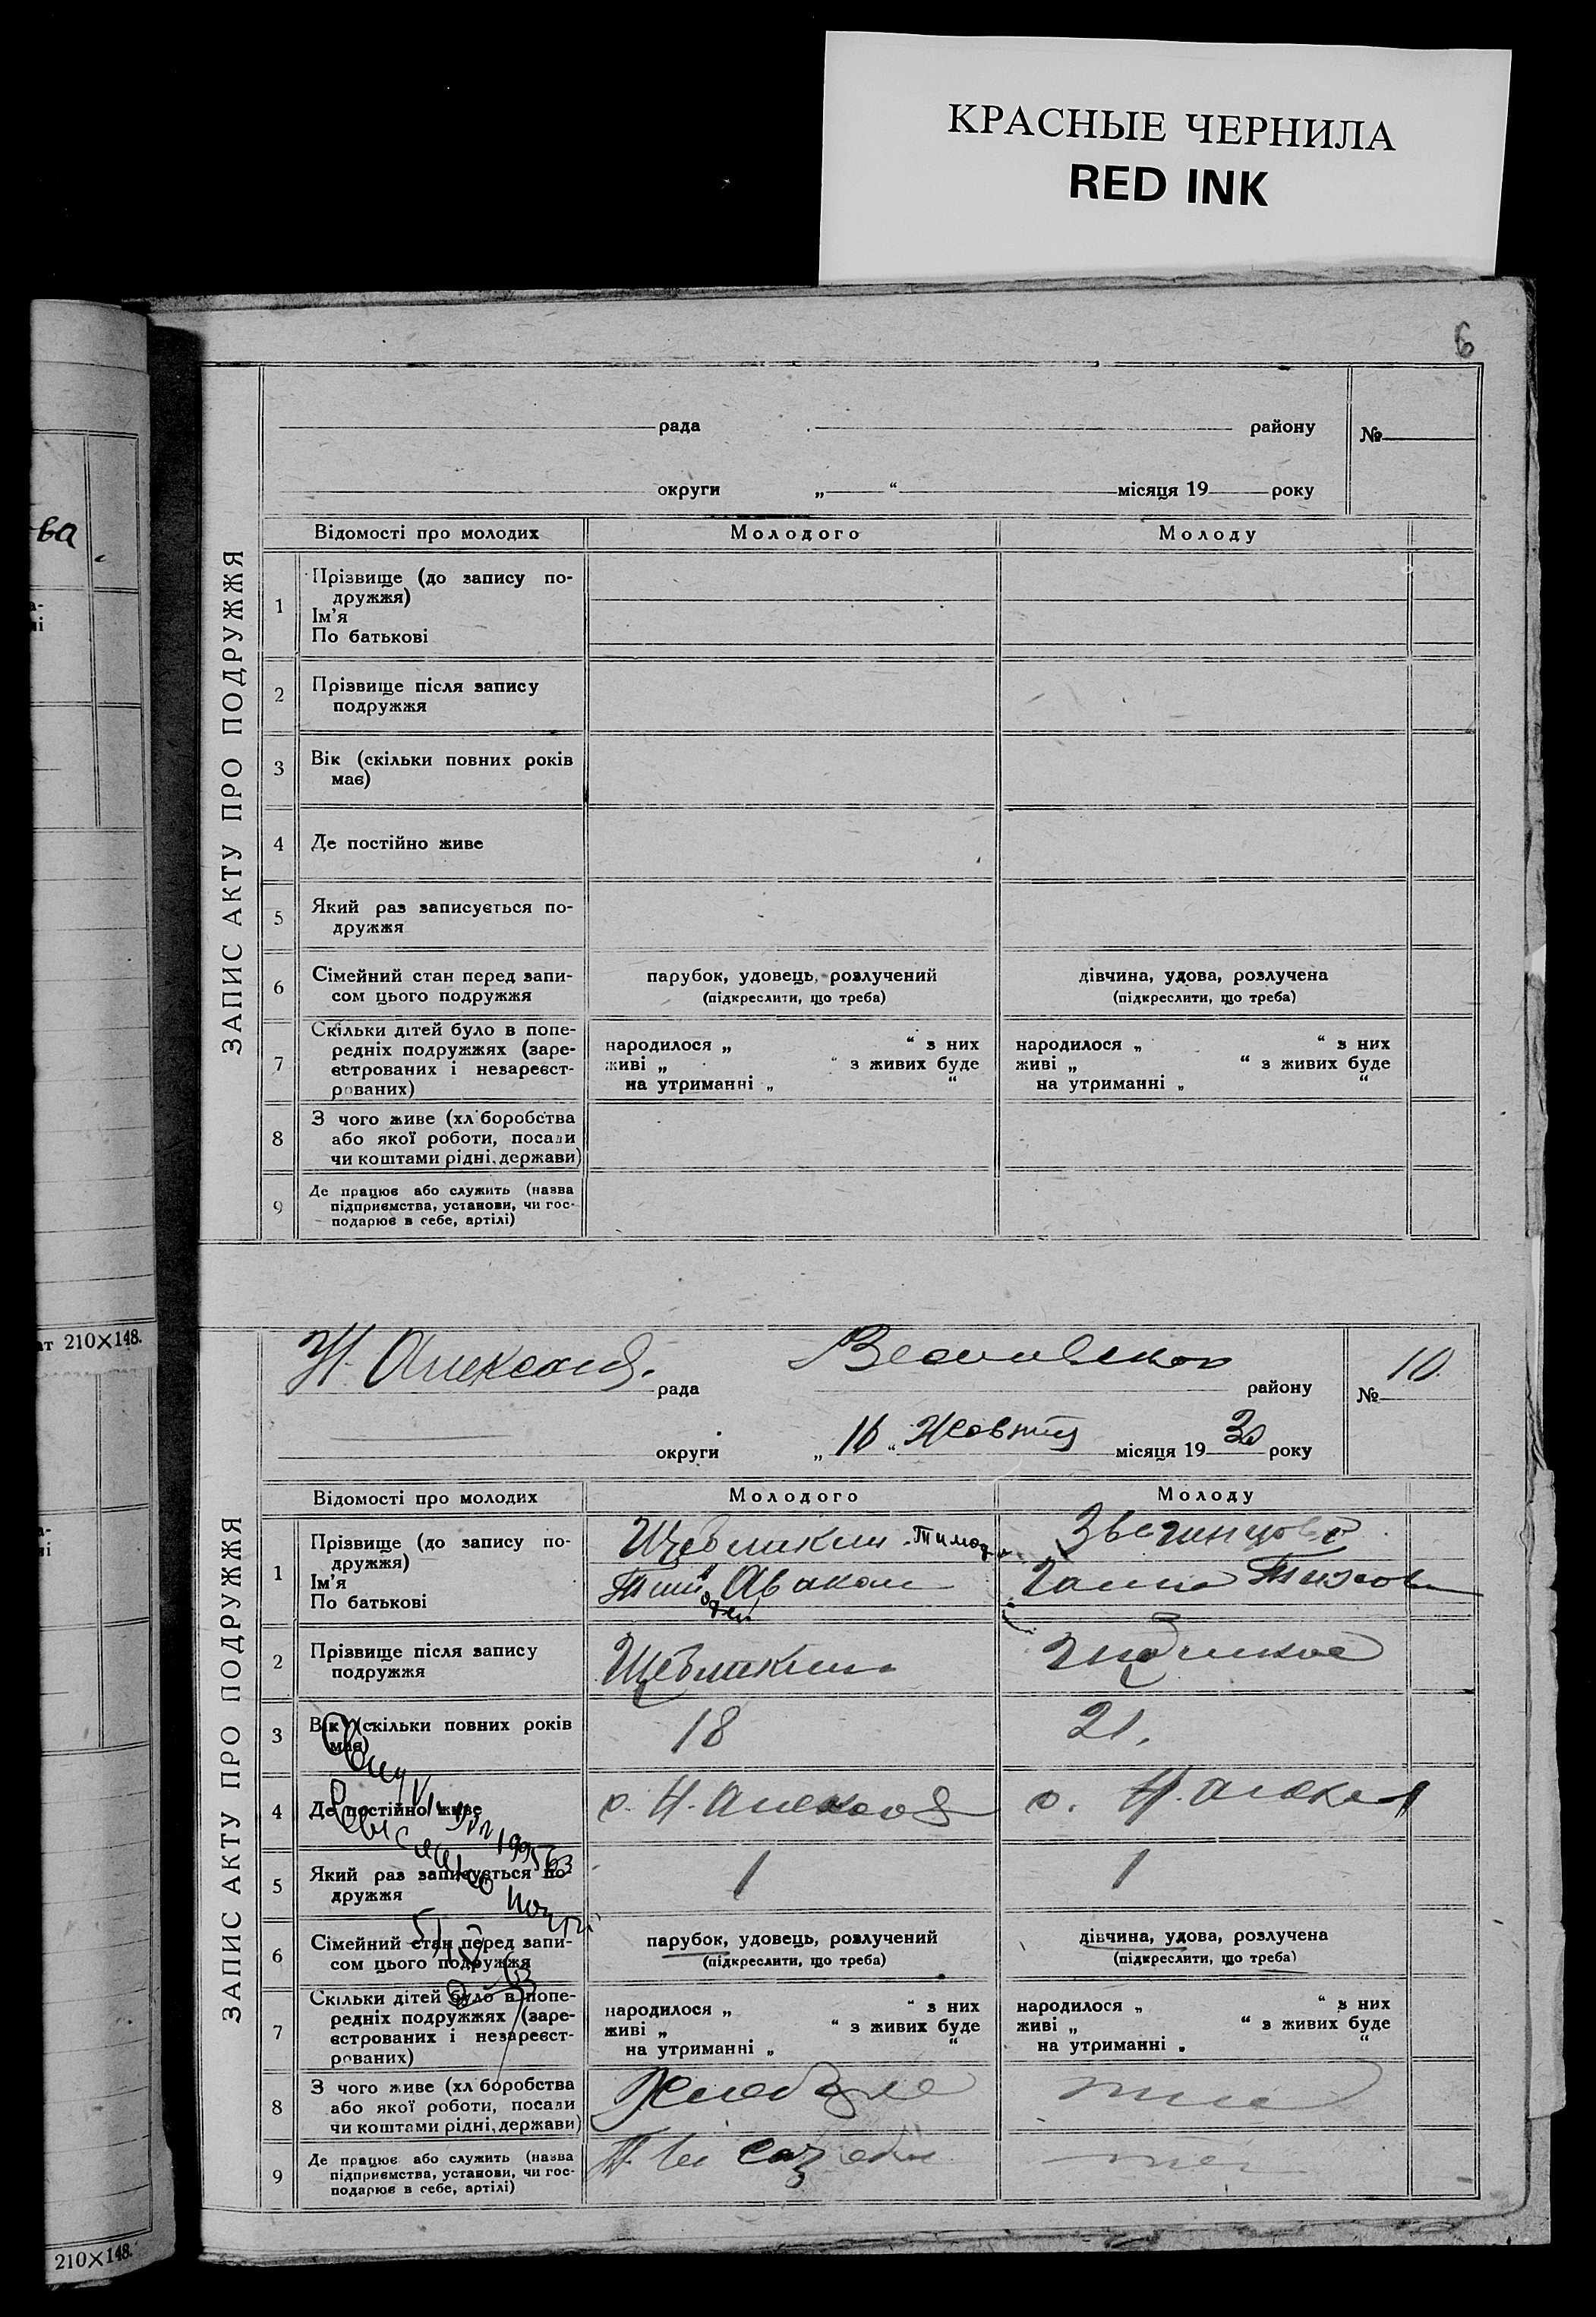 КРАСНЫЕ ЧЕРНИЛА
RED INK
6
ва
ат 210×148.
210×148.
ЗАПИС АКТУ ПРО ПОДРУЖЖЯ
рада району №
округи „ “ місяця 19 року
Відомості про молодих Молодого Молоду
1 Прізвище (до запису по-
дружжя)
Ім'я
По батькові
2 Прізвище після запису
подружжя
3 Вік (скільки повних років
має)
4 Де постійно живе
5 Який раз записується по-
дружжя
6 Сімейний стан перед запи-
сом цього подружжя
парубок, удовець, розлучений
(підкреслити, що треба)
дівчина, удова, розлучена
(підкреслити, що треба)
7 Скільки дітей було в попе-
редніх подружжях (заре-
єстрованих і незареєст-
рованих)
народилося „ “ з них
живі „ “ з живих буде
на утриманні „ “
народилося „ “ з них
живі „ “ з живих буде
на утриманні „ “
8 З чого живе (хліборобства
або якої роботи, посади
чи коштами рідні, держави)
9 Де працює або служить (назва
підприємства, установи, чи гос-
подарює в себе, артілі)
ЗАПИС АКТУ ПРО ПОДРУЖЖЯ
Н. Александ. рада району № 10
округи „16“ Жовтня місяця 1930 року
Відомості про молодих Молодого Молоду
1 Прізвище (до запису по-
дружжя)
Ім'я
По батькові
Авакам
Ганна
2 Прізвище після запису
подружжя
3 Вік (скільки повних років
має)
18 21.
4 Де постійно живе
с. Н. Александ с. Н. Алекса
5 Який раз записується по-
дружжя
1 1
6 Сімейний стан перед запи-
сом цього подружжя
парубок, удовець, розлучений
(підкреслити, що треба)
дівчина, удова, розлучена
(підкреслити, що треба)
7 Скільки дітей було в попе-
редніх подружжях (заре-
єстрованих і незареєст-
рованих)
народилося „ “ з них
живі „ “ з живих буде
на утриманні „ “
народилося „ “ з них
живі „ “ з живих буде
на утриманні „ “
8 З чого живе (хліборобства
або якої роботи, посади
чи коштами рідні, держави)
9 Де працює або служить (назва
підприємства, установи, чи гос-
подарює в себе, артілі)